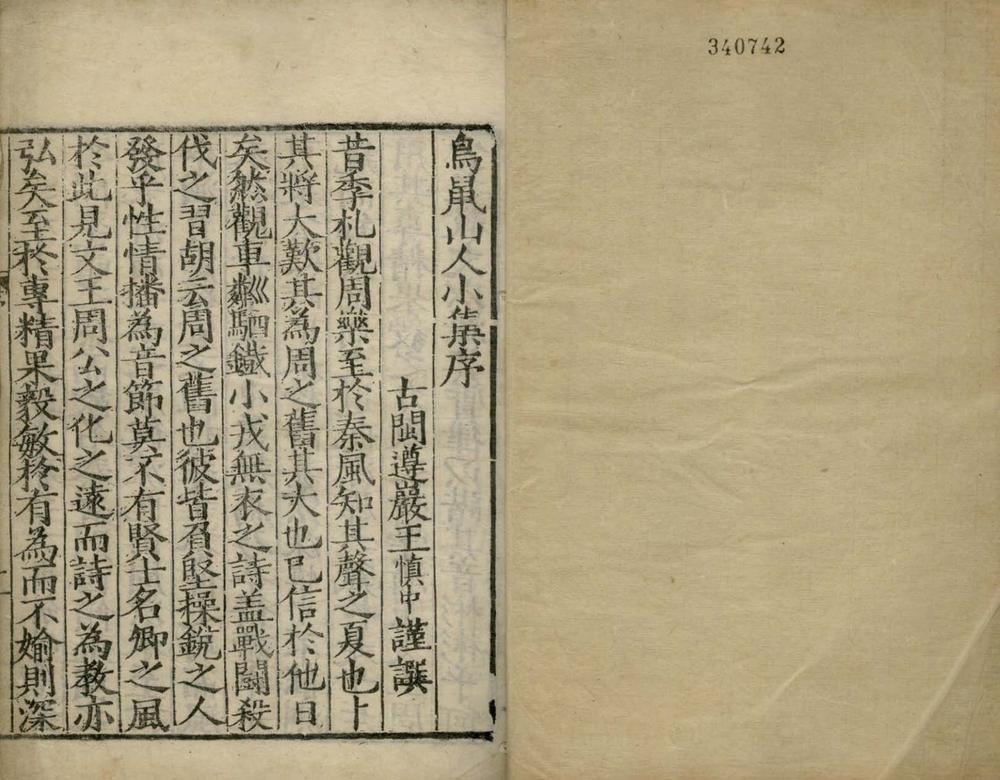 340742
鳥鼠山人小集序
古閩遵巖王慎中謹譔
昔季札觀周樂至於秦風知其聲之夏也卜
其將大歎其為周之舊其大也已信於他日
矣然觀車鄰駟鐵小戎無衣之詩盖戰鬪殺
伐之習胡云周之舊也彼皆負堅操銳之人
發乎性情播為音節莫不有賢士名卿之風
於此見文王周公之化之遠而詩之為教亦
弘矣至於專精果毅敏於有為而不媮則深